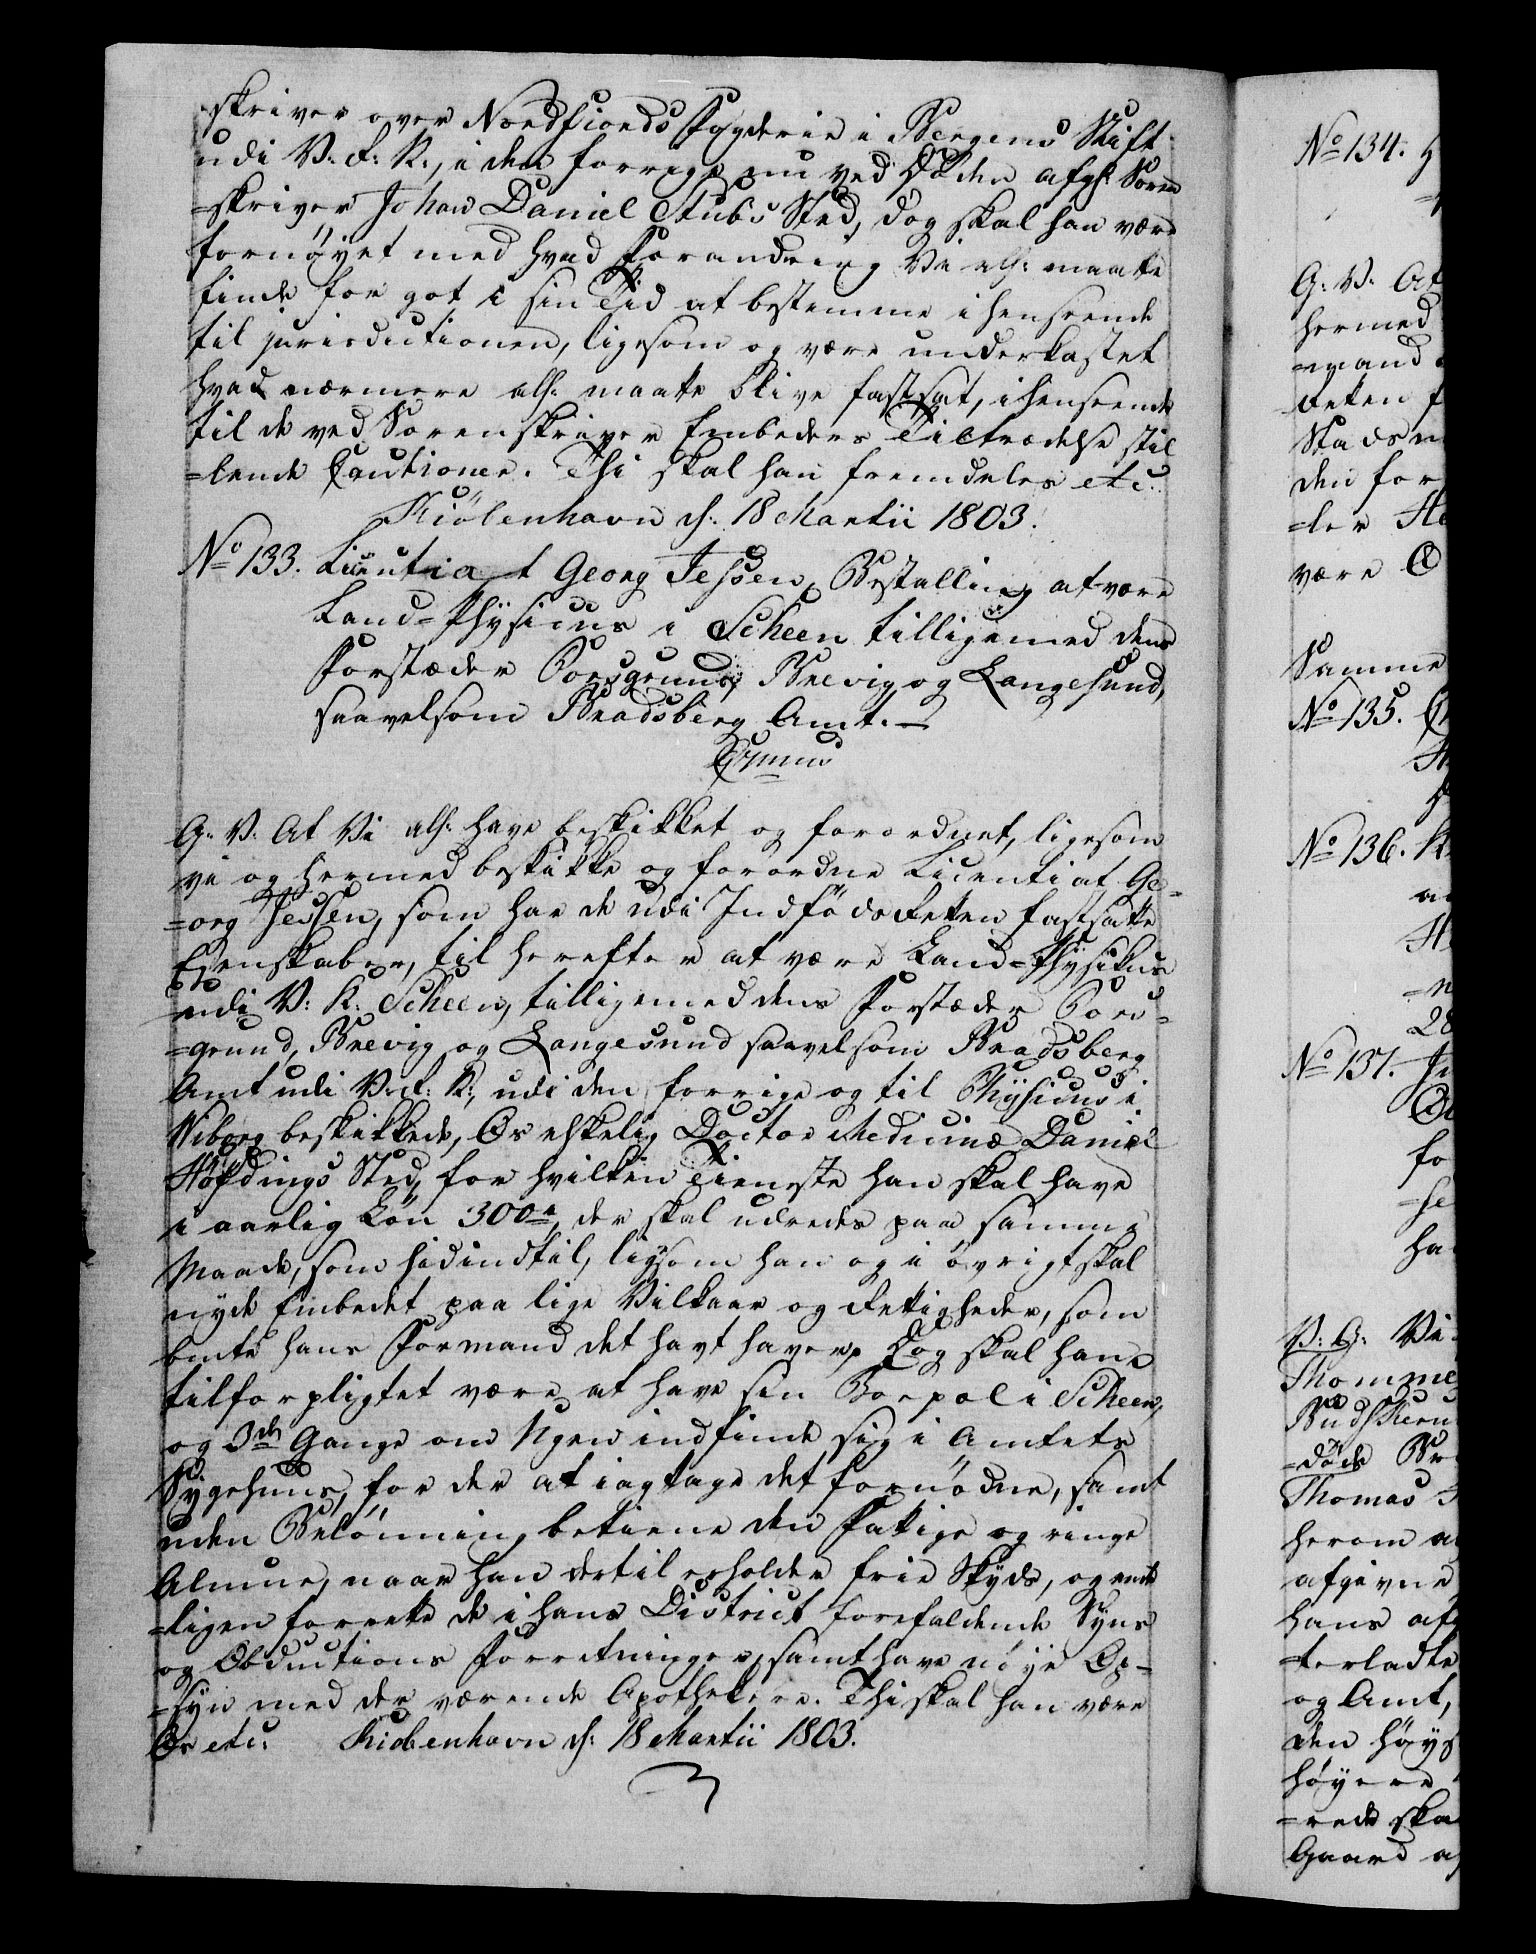 skriver over Nordfiords Fogderie i Bergens Stift
udi V. R: N:, i den forrige nu ved Døden afg: Soren
=skriver Johan Daniel Stubs Sted, dog skal han være
fornøyet med hvad Forandring Vi alh: maatte
finde for got i sin Tid at bestemme i henseende
til jurisdictionen, ligesom og være underkastet
hvad nærmere alh: maatte blive fastsat, i henseende
til de ved Sorenskriver Embeders Tiltrædelse stil
=lende Cautioner. Thi skal han fremdeles etc.
Kiöbenhavn d: 18 Martii 1803.
No 133. Licentiat Georg Jessen, Bestalling at være
Land-Physicus i Scheen tilligemed dens
Forstæder Porsgrund, Brevig og Langesund,
saavelsom Bradsberg Amt. —
G: V: At Vi alh: have beskikket og forordnet, ligesom
vi og hermed beskikke og forordne Licentiat Ge=
=org Jessen, som har de udi Indföds Retten fastsatte
Egenskaber, til herefter at være Land-Physikus
udi V: K: Scheen, tilligemed dens Forstæder Pors=
=grund, Brevig og Langesund saavelsom Bradsberg
Amt udi V. R: N:, udi den forrige og til Physicus i
Viborg beskikkede, Os elskelig Doctor Medicinæ Daniel
Höfdings Sted, for hvilken Tieneste han skal have
i aarlig Løn 300, der skal udredes paa samme
Maade, som hidindtil, ligesom han og i övrigt skal
nyde Embedet paa lige Vilkaar og Rettigheder, som
bmte hans Formand det havt haver. Dog skal han
tilforpligtet være, at have sin Boepæl i Scheen,
og 3de Gange om Ugen indfinde sig i Amtets
Sygehuus, for der at iagtage det fornödne, samt
uden Belönning betiene den fattige og ringe
Almue, naar han dertil erholder frie Skyds, og ende
=ligen forrette de i hans District forefaldende Syns
og Obductions Forretninger, samt have nöye Op=
=syn med der værende Apothekere. Thi skal han være
Os etc: Kiöbenhavn d: 18 Martii 1803.
No 134.
G: V: At
hermed
=mand
Retten
Stads
den for
=ler
være
Samme
No 135.
No 136.
28
No 137.
for
=se
ha
V: G: Vi
Thomme
Budskeru
=döde
Thomas
herom
afgivne
hans aft
=terladte
og Amt,
den höys
höyere
=rede ska
Gaard